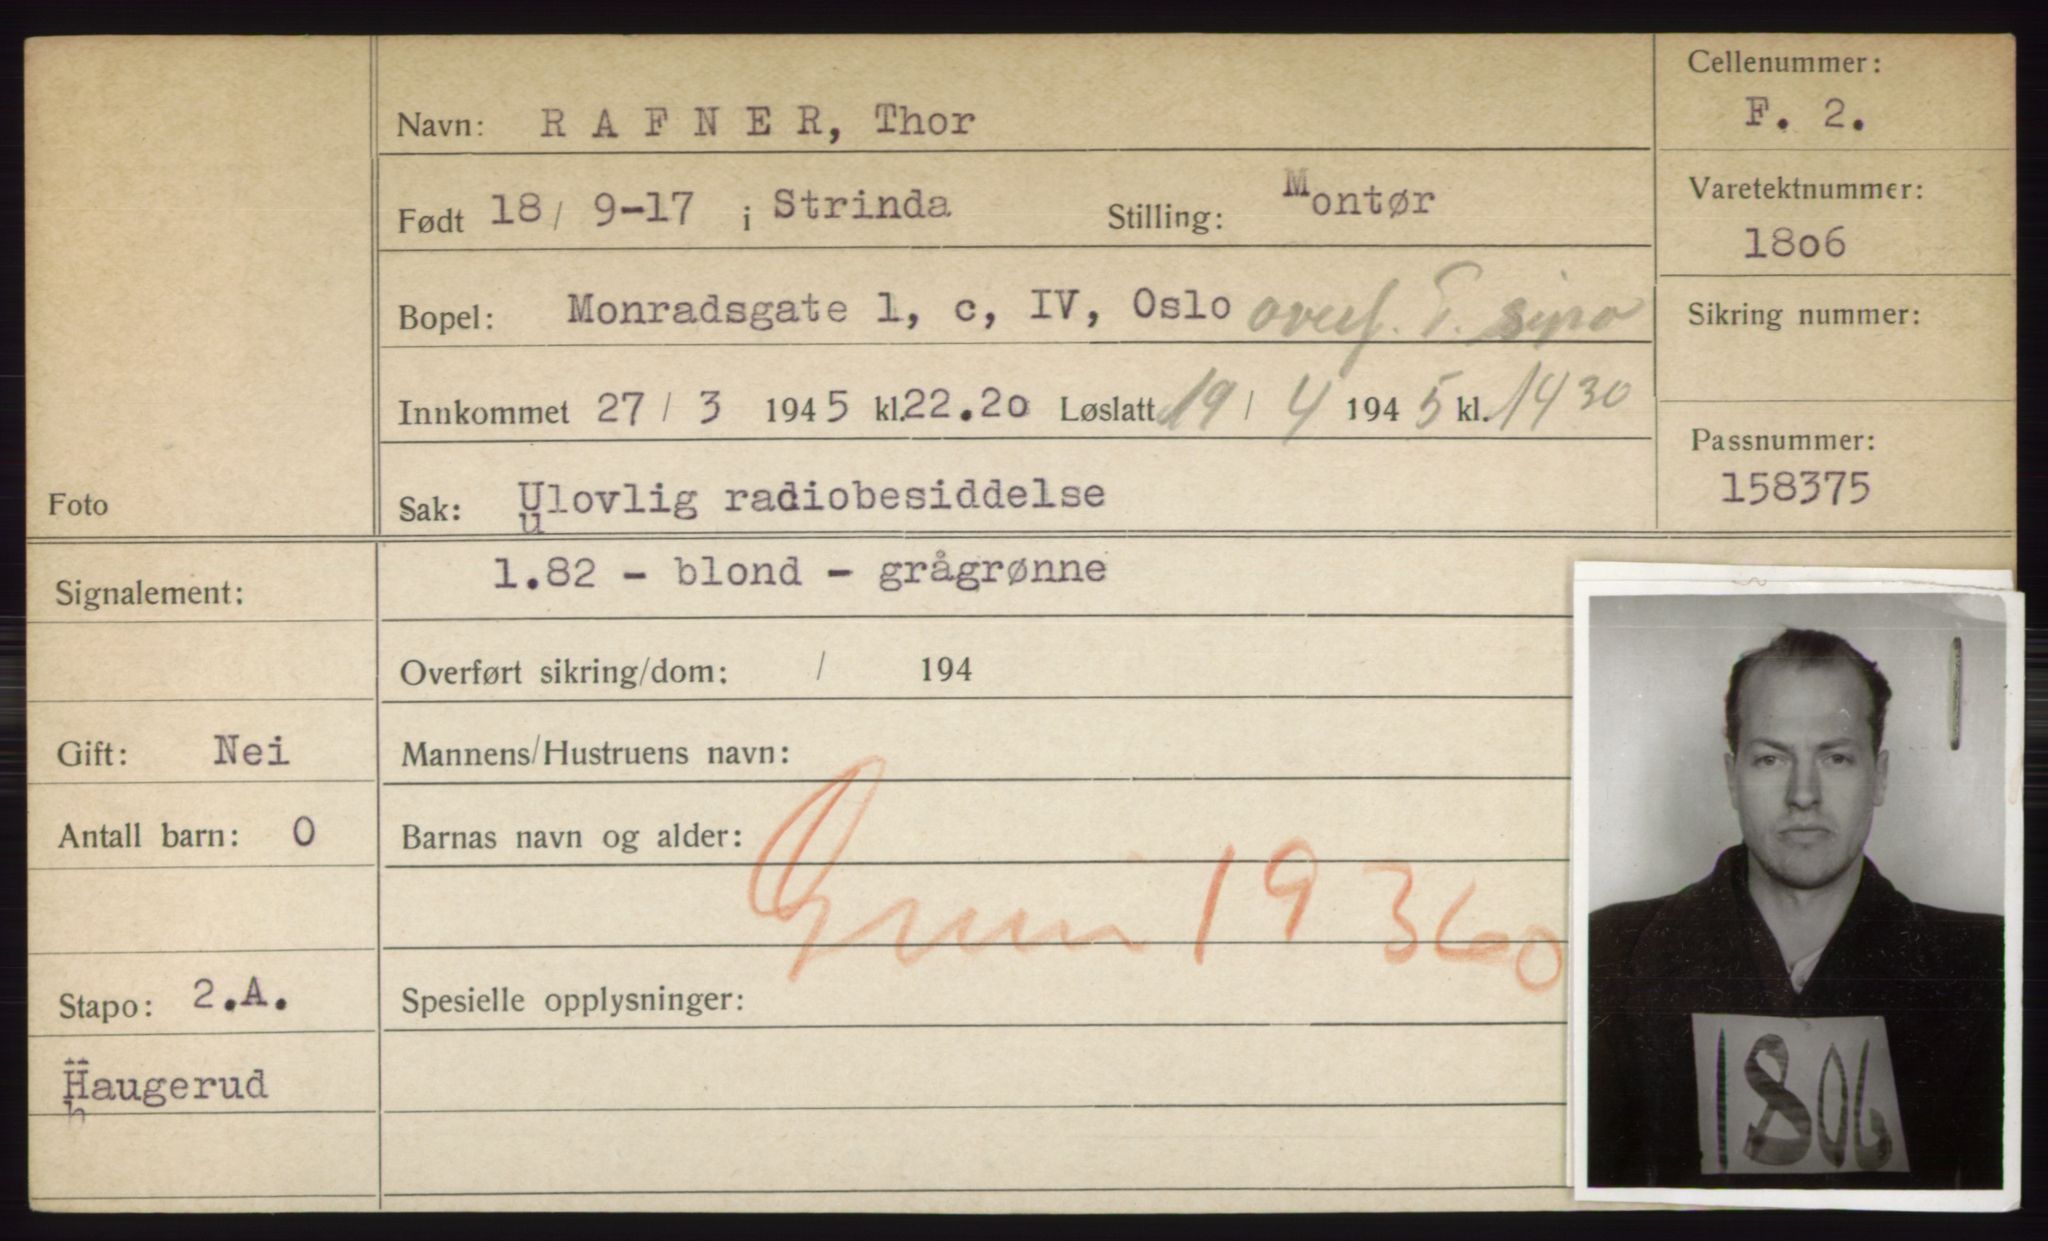 Cellenummer:
F. 2.
Navn: R A F N E R, Thor
Varetektnummer:
1806
Født 18/ 9-17 i Strinda Stilling: Montør
Bopel: Monradsgate 1, c, IV, Oslo overf. T. sipo
Sikring nummer:
Innkommet 27 / 3 1945 kl. 22.20 Løslatt 19 / 4 1945 kl. 14 30
Passnummer:
158375
Foto
Sak: Ulovlig radiobesiddelse
Signalement: 1.82 - blond - grågrønne
Overført sikring/dom: / 194
Gift: Nei Mannens/Hustruens navn:
Antall barn: 0 Barnas navn og alder:
Grini 19360
Stapo: 2.A. Spesielle opplysninger:
Haugerud
1806